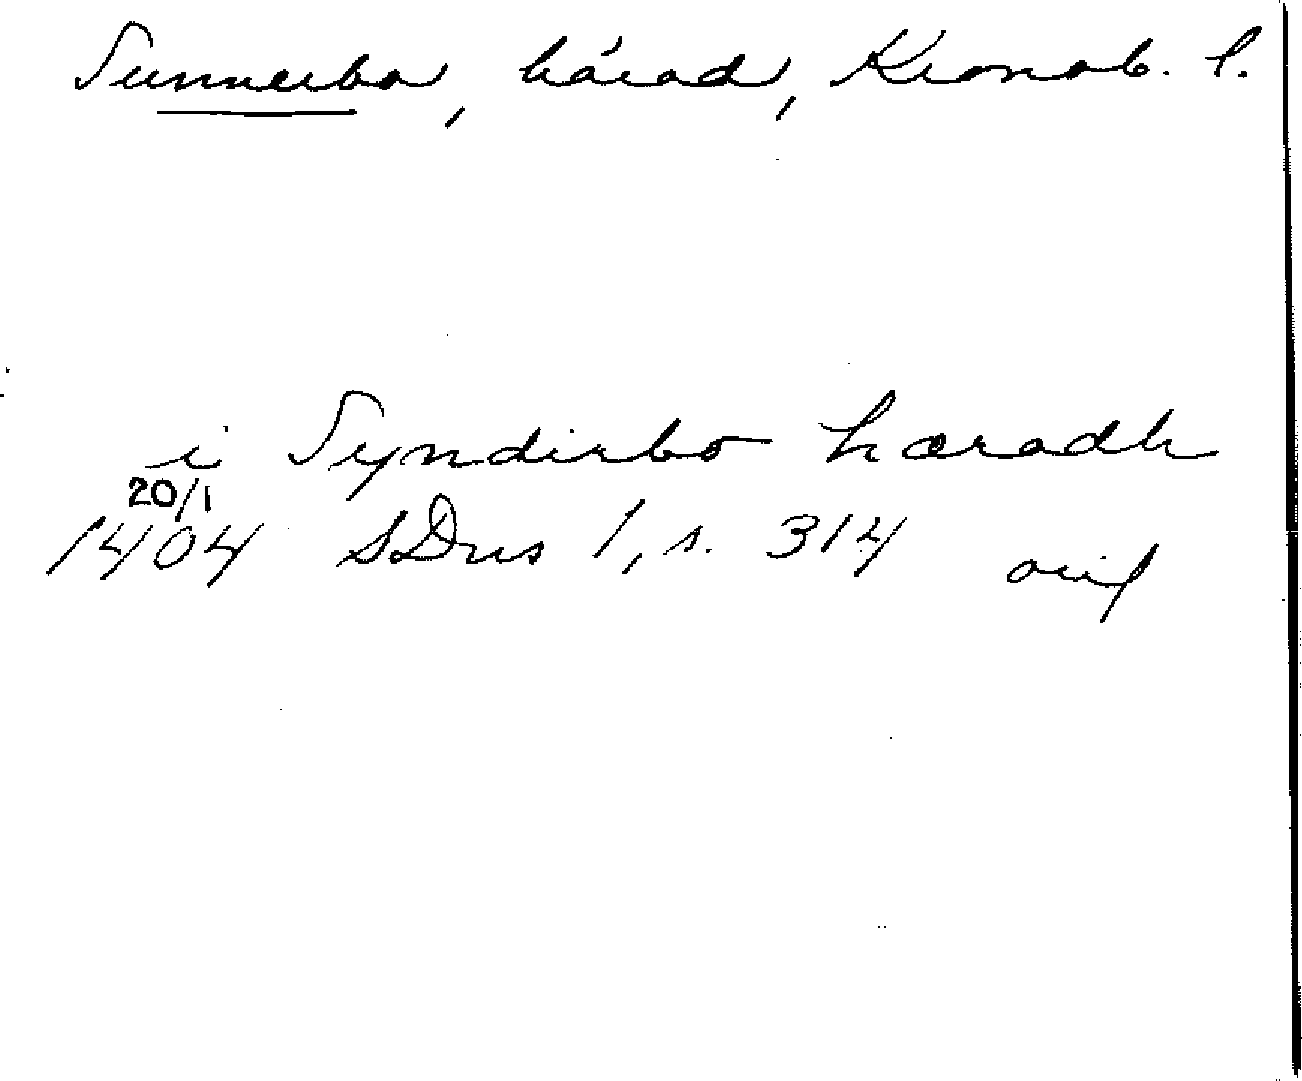 Sunnerbo, härad, Kronob. l.
i Syndirbo hæradh
20/1
1404 SDns 1, s. 314 orig